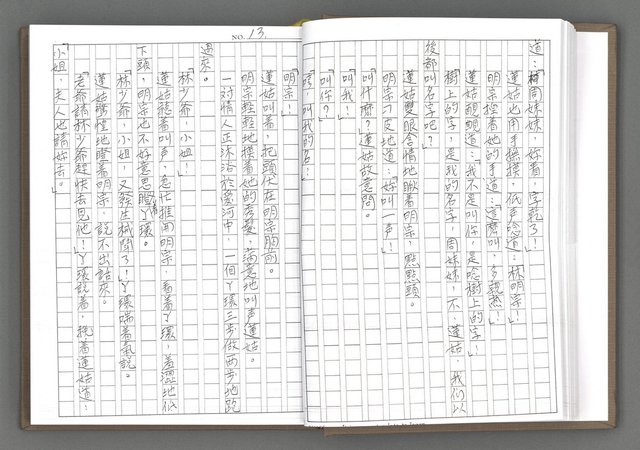 道：「周妹妹，妳看，字乾了！」
蓮姑也用手摸摸，低声唸道：「林明宗！」
明宗握着她的手道：「這麼叫，多親热！」
蓮姑靦覥道：「我不是叫你，是唸樹上的字！」
「樹上的字，是我的名字，周妹妹，不，蓮姑，我們以
後都叫名字吧？」
蓮姑雙眼含情地瞅着明宗，點點頭。
明宗頑皮地道：「妳叫一声！」
「叫什麼？」蓮姑故意問。
「叫我！」
「叫你？」
「嗯，叫我的名！」
NO. 13.
「明宗！」
蓮姑叫着，把頭伏在明宗胸前。
明宗輕輕地摸着她的秀髮，滿意地叫声蓮姑。
一对情人正沐浴於愛河中，一個丫環三步做两步地跑
過來。
「林少爺，小姐！」
蓮姑聽着叫声，急忙推開明宗，看着丫環，羞澀地低
下頭，明宗也不好意思瞪着丫環。
「林少爺，小姐，又發生械鬥了！」丫環喘着氣說。
蓮姑驚惶地瞪着明宗，說不出話來。
「老爺請林少爺趕快去見他！」丫環說着，挽着蓮姑道：
「小姐，夫人也請妳去。」